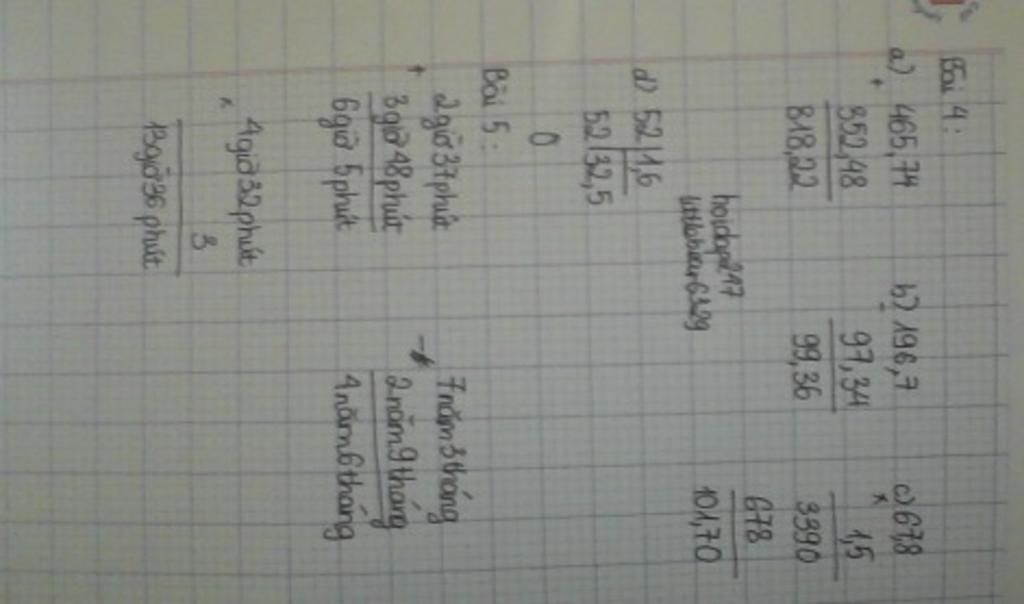 Bài 4:
a) 465,74
+
352,48
818,22
b) 196,7
-
97,34
99,36
c) 67,8
x
1,5
3390
678
101,70
hoidap247
d) 52 1,6
52 32,5
0
Bài 5:
2 giờ 37 phút
+
3 giờ 48 phút
6 giờ 5 phút
7 năm 3 tháng
-
2 năm 9 tháng
4 năm 6 tháng
4 giờ 32 phút
x
3
13 giờ 36 phút